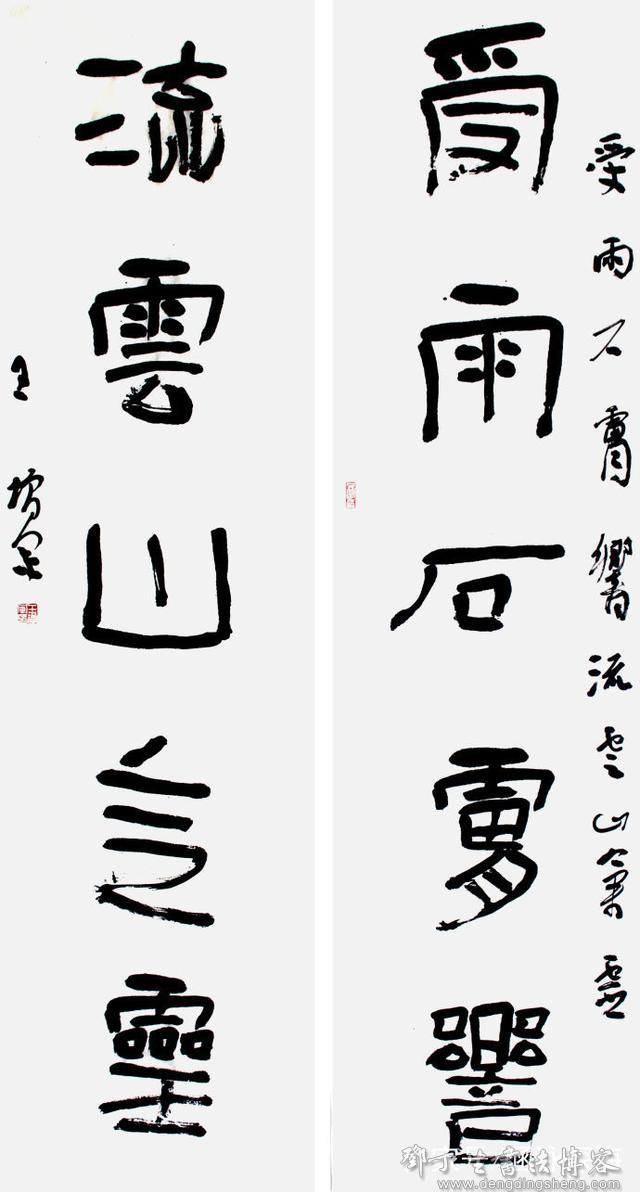 受雨石膚響流雲山氣靈
受雨石膚響
流雲山气靈
王
鄧丁生書法博客
www.dengdingsheng.com